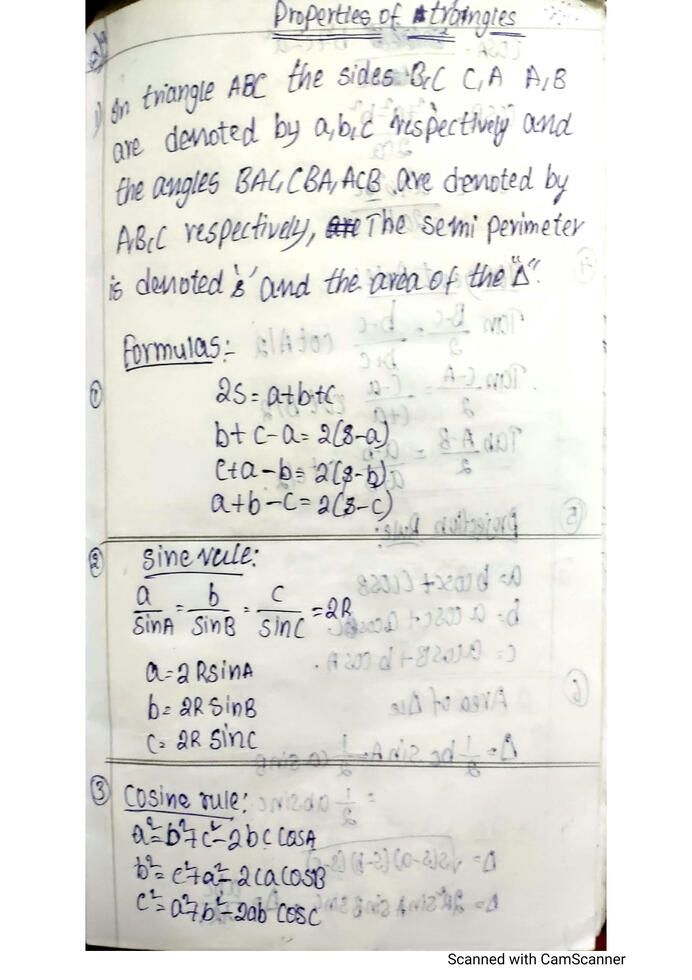 Properties of triangles
1) In triangle ABC the sides B,C C,A A,B
are denoted by a,b,c respectively and
the angles BAC, CBA, ACB are denoted by
A,B,C respectively, The semi perimeter
is denoted 's' and the area of the "Δ".
Formulas:-
① 2S = a+b+c
b+c-a = 2(s-a)
c+a-b = 2(s-b)
a+b-c = 2(s-c)
② Sine rule:
a/SinA = b/SinB = c/SinC = 2R
a=2RsinA
b= 2R SinB
c= 2R SinC
③ Cosine rule:
a²=b²+c²-2bc cosA
b²= c²+a²-2ca cosB
c²=a²+b²-2ab cosC
Scanned with CamScanner